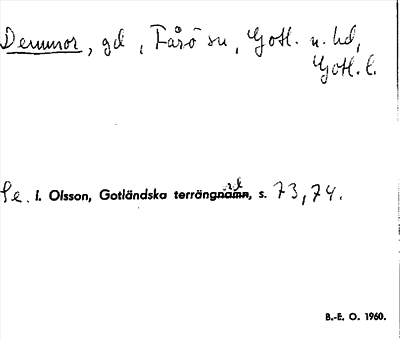 Demmor, gd, Fårö sn, Gotl. n. hd,
Gotl. l.
Se. I. Olsson, Gotländska terrängnamn, s. 73, 74.
B.-E. O. 1960.